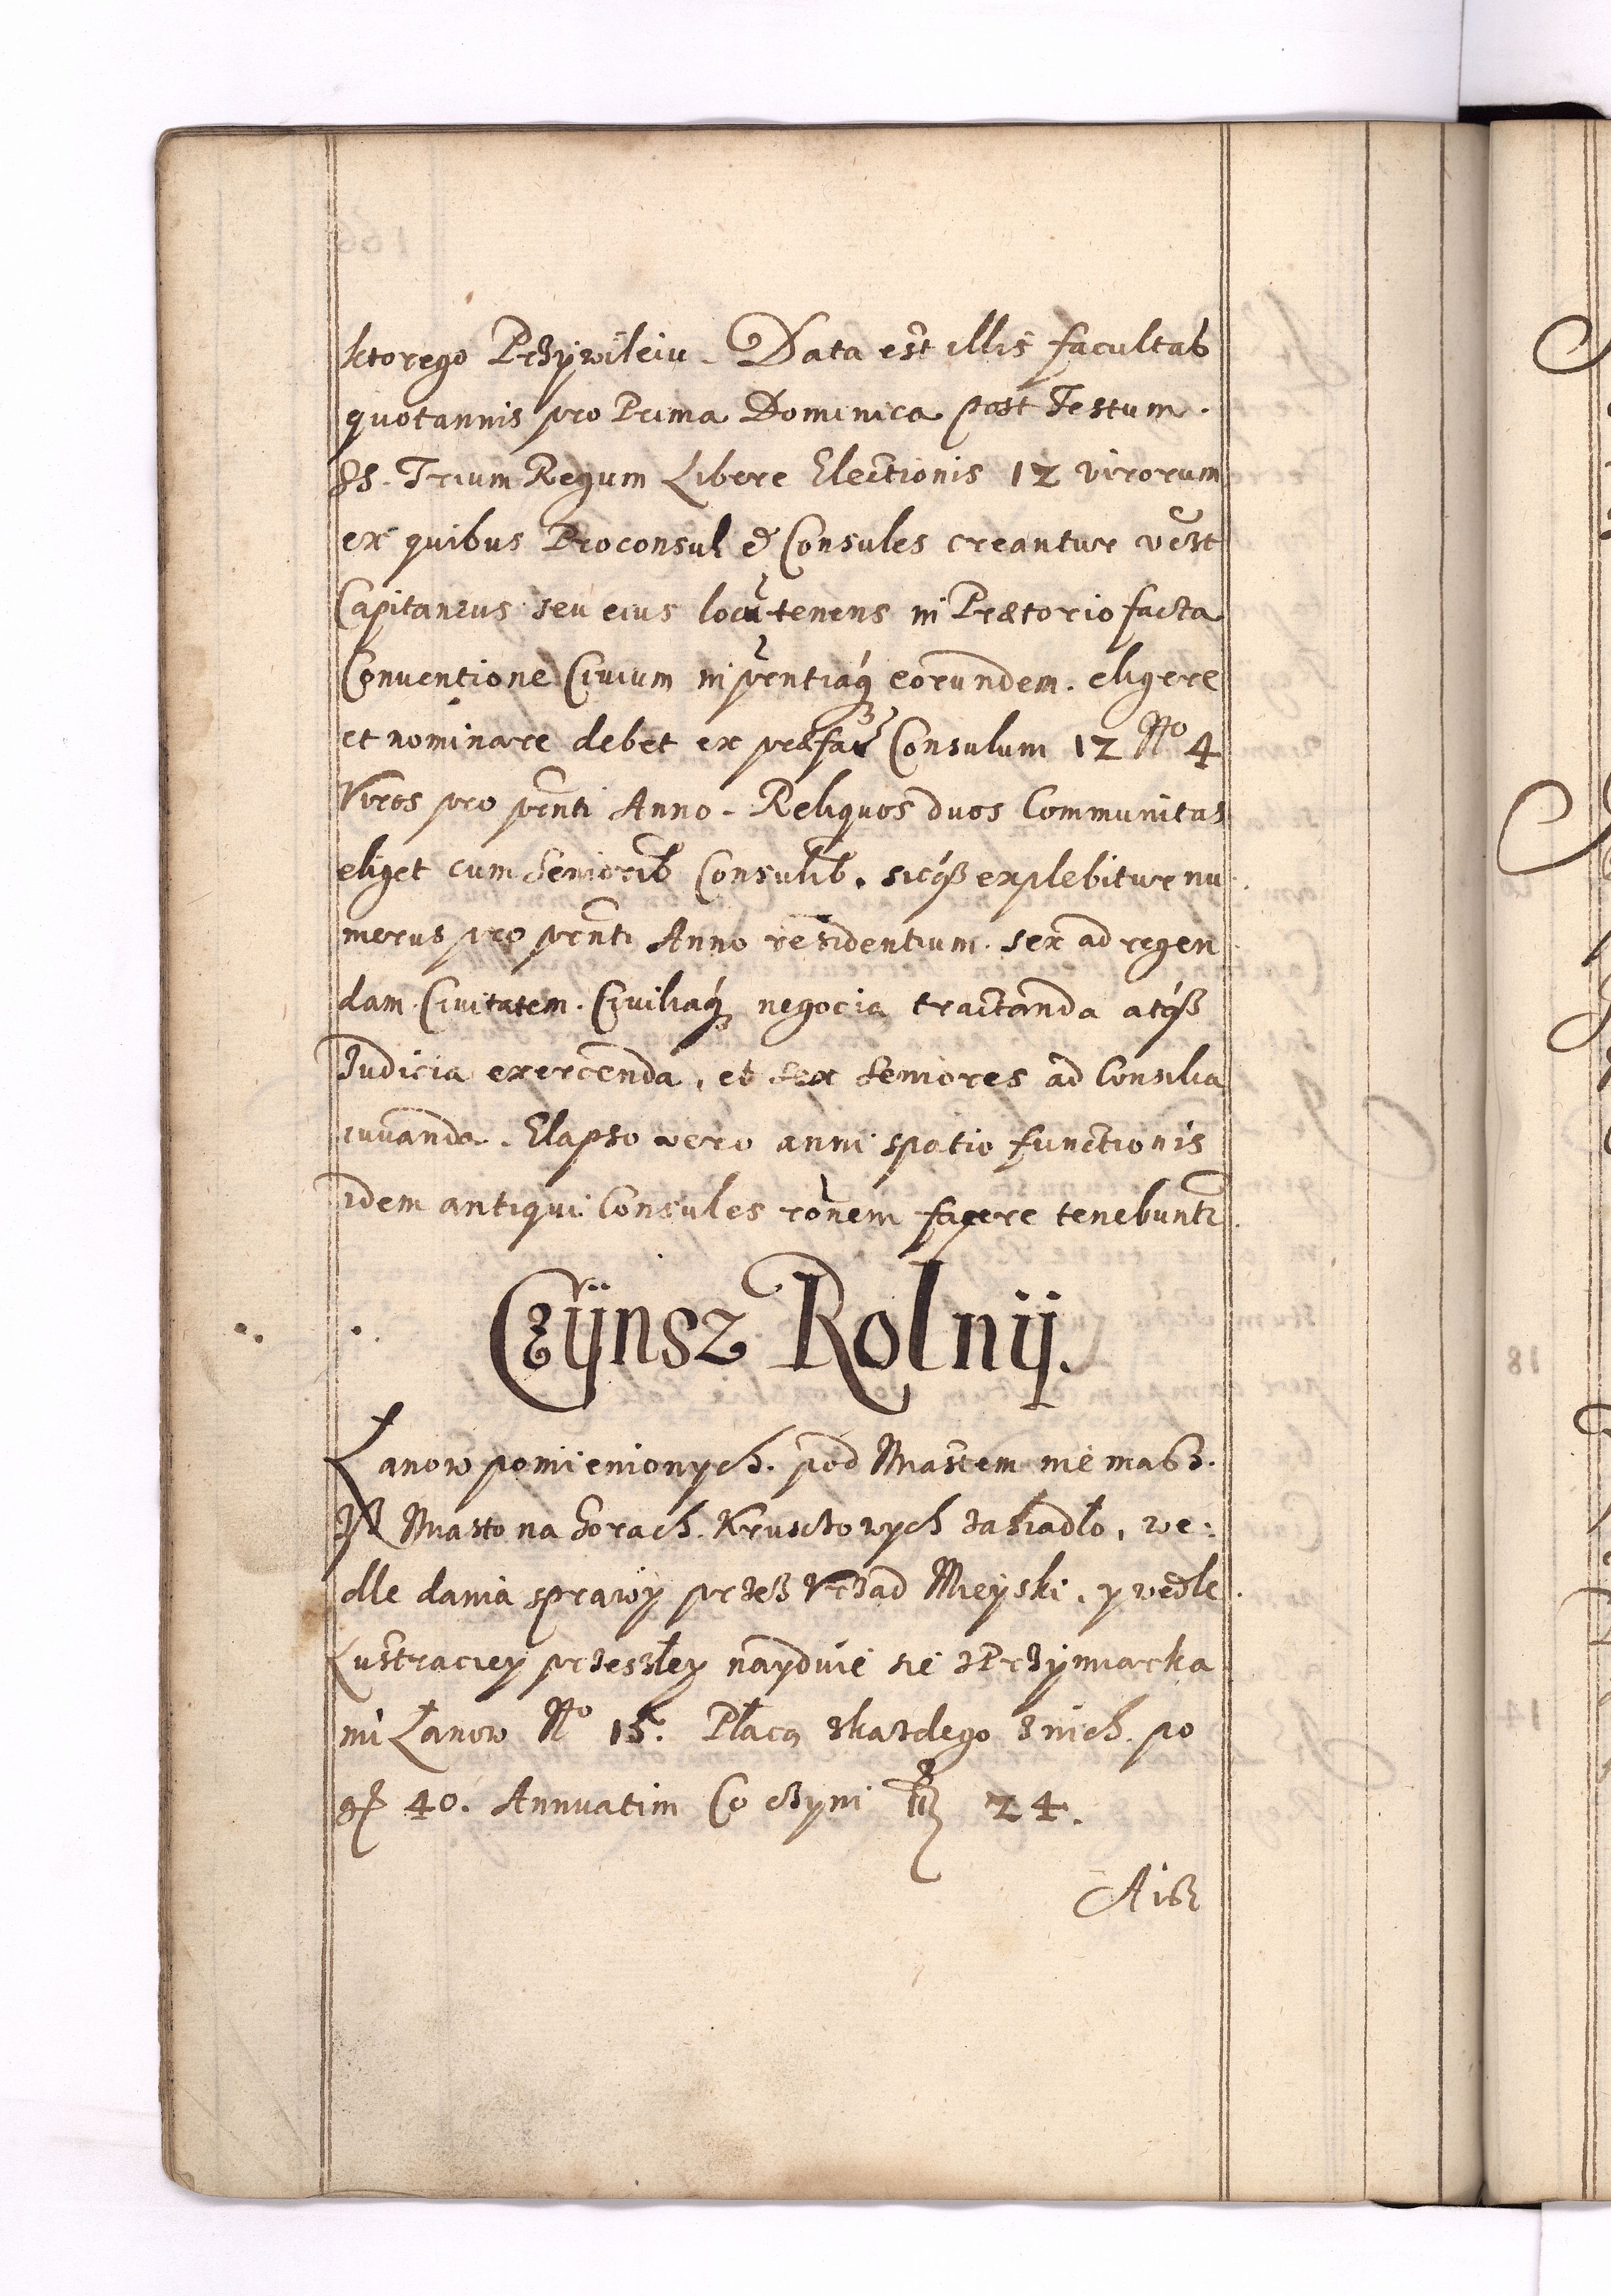 ktorego Przywileiu. Data est illis facultas
quotannis pro Prima Dominica post Festum.
SS. Trium Regum Libere Electionis 12 virorum
ex quibus Proconsul & Consules creantur vest
Capitaneus seu eius locūtenens in Prætorio facta
Conventione Civium in pñtiaq́ eorundem. eligere
et nominare debet ex præfat Consulum 12 No 4
Viros pro pñti Anno. Reliquos duos Communitas
eliget cum Seniorib Consulib. sicq́ß explebitur nu
merus pro pñti Anno residentium. sex ad regen
dam Civitatem. Civiliaq́ negocia tractanda atq́ß
Judicia exercenda, et sex Seniores ad Consilia
iuvanda. Elapso vero anni spatio functionis
idem antiqui Consules rõnem facere tenebuntr.
Czÿnsz Rolnij.
Łanow pomienionych. pod Miastem nie masz.
Iż Miasto na Gorach. Kruscowych zasiadło, we:
dle dania sprawy przesz Vrzad Mieyski, y wedle
Lustraciey przeszłey nayduie sie z Przymiarka
mi Łanow No 15. Płacą zkazdego z nich. po
gr 40. Annuatim Co czyni 24.
Aisz